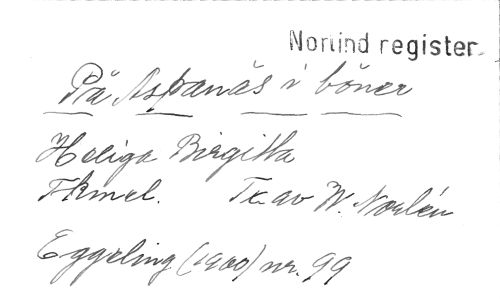 Norlind register
På Aspanäs i böner
Heliga Birgitta
Fkmel. Tr. av W. Norlén
Eggeling (1900) nr. 99